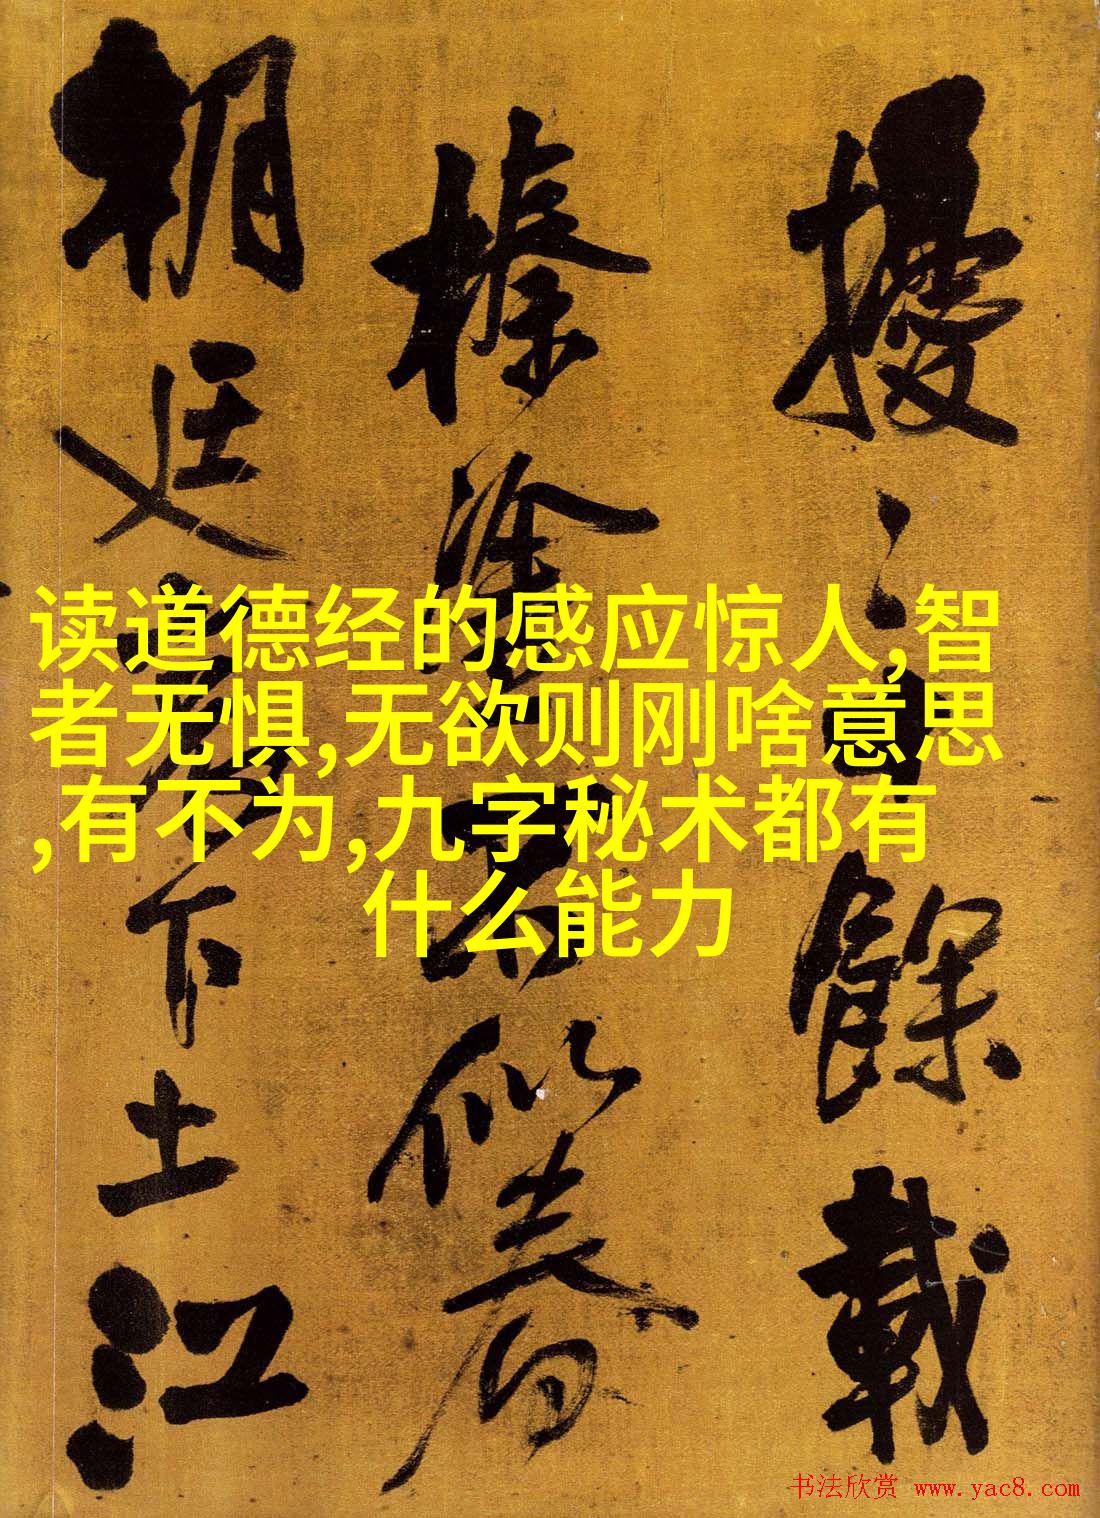 擾之餘載
榛塗未似春
朝廷
下土江
读道德经的感应惊人,智
者无惧,无欲则刚啥意思
,有不为,九字秘术都有
什么能力
书法欣赏 www.yac8.com